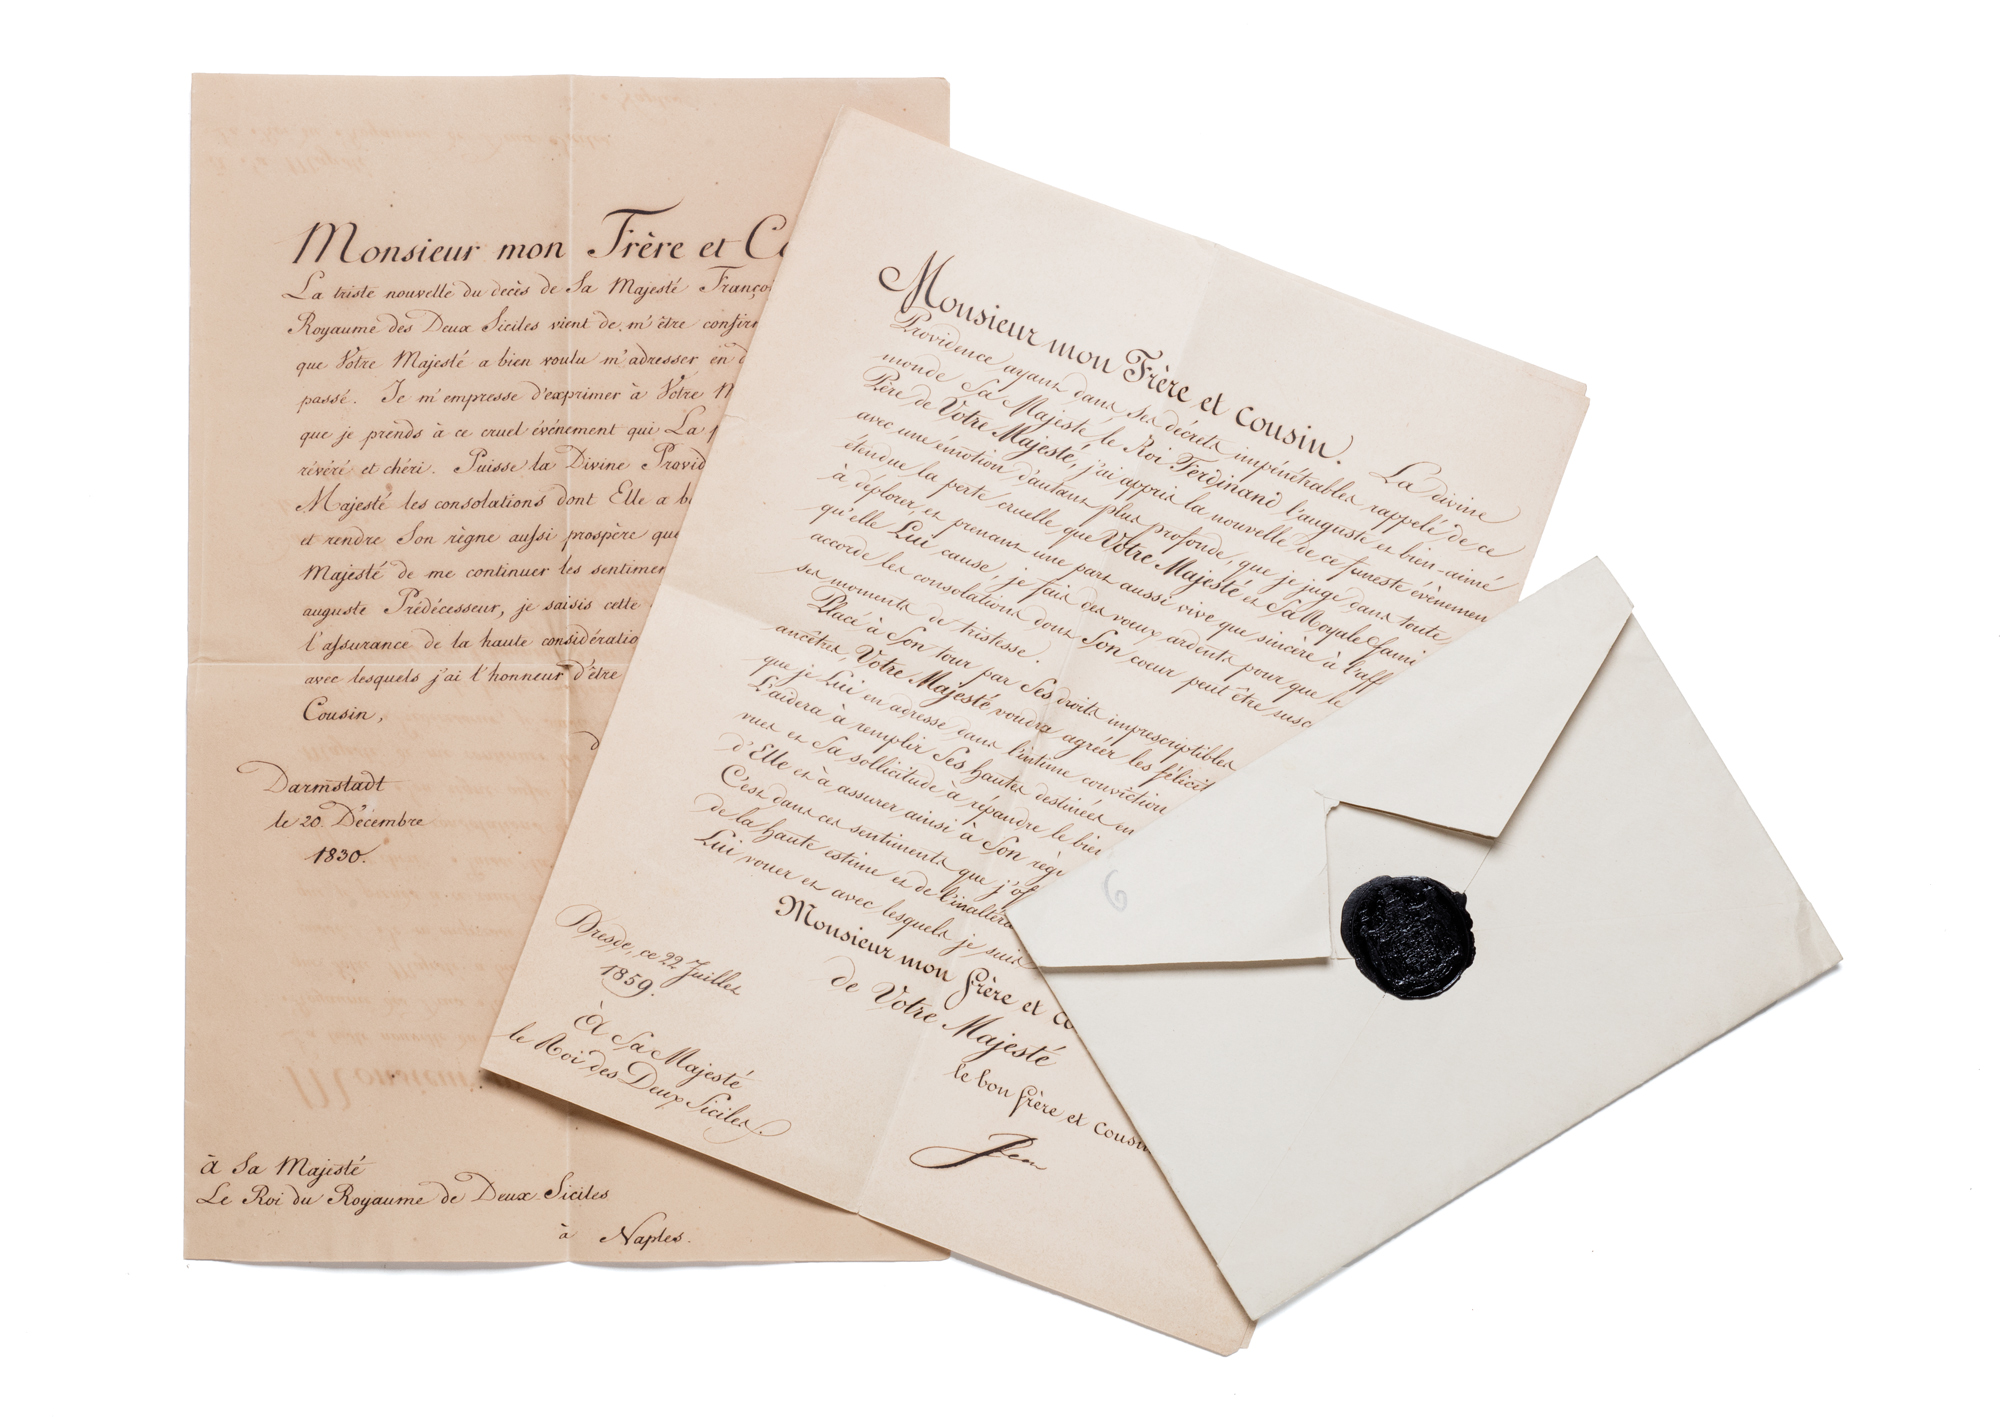 Monsieur mon Frère et Co
La triste nouvelle du decès de Sa Majesté Franço
Royaume des Deux Siciles vient de m'être confir
que Votre Majesté a bien voulu m'adresser en d
passé. Je m'empresse d'exprimer à Votre M
que je prends à ce cruel événement qui La p
révéré et chéri. Puisse la Divine Provid
Majesté les consolations dont Elle a b
et rendre Son règne aussi prospère que
Majesté de me continuer les sentimen
auguste Prédécesseur, je saisis cette
l'assurance de la haute considératio
avec lesquels j'ai l'honneur d'être
Cousin,
d
Darmstadt
le 20. Décembre
1830.
à Sa Majesté
Le Roi du Royaume de Deux Siciles
à Naples.
Monsieur mon Frère et cousin. La divine
Providence ayant dans ses décrets impénétrables rappelé de ce
monde Sa Majesté le Roi Ferdinand l'auguste et bien-aimé
Père de Votre Majesté, j'ai appris la nouvelle de ce funeste évènemen
avec une émotion d'autant plus profonde, que je juge dans toute
étendue la perte cruelle que Votre Majesté et Sa Royale fami
à déplorer, et prenant une part aussi vive que sincère à l'aff
qu'elle Lui cause, je fais des voeux ardents pour que le
accorde les consolations dont Son coeur peut être susc
ses moments de tristesse.
Placé à Son tour par Ses droits imprescriptibles
ancêtres, Votre Majesté voudra agréer les félicit
que je Lui en adresse dans l'intime conviction
L'aidera à remplir Ses hautes destinées en
vues et Sa sollicitude à répandre le bien
d'Elle et à assurer ainsi à Son règn
C'est dans ces sentiments que j'of
de la haute estime et de l'inaltéra
Lui vouer et avec lesquels je suis
Monsieur mon frère et co
de Votre Majesté
le bon frère et cousin
Jean
Dresde, ce 22 Juillet
1859.
à Sa Majesté
le Roi des Deux Siciles.
6